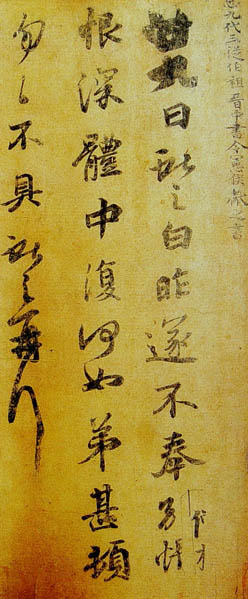 臣九代三從伯祖晉中書令憲侯獻之書
廿九日獻之白昨遂不奉別悵
恨深體中復何如弟甚頓
勿々不具獻之再拜